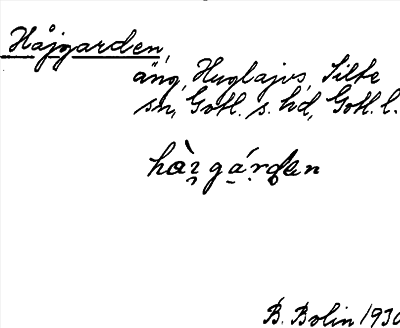 Håjgarden,
äng, Huglajvs, Silte
sn, Gotl. s. hd, Gotl. l.
B. Bolin 1930